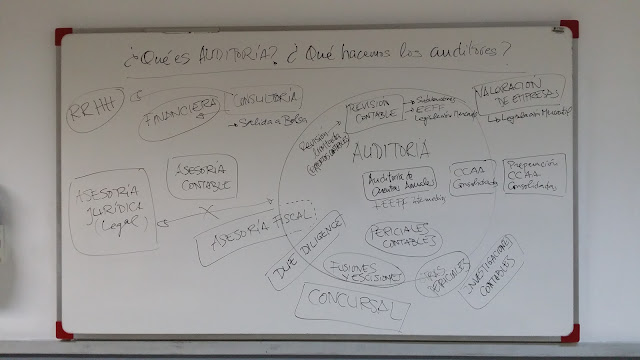 ¿Qué es AUDITORÍA? ¿Qué hacemos los auditores?
RRHH
FINANCIERA
CONSULTORÍA
→ Salida a Bolsa
REVISIÓN
CONTABLE
→ Subvenciones
→ EEFF
Legislación Mercantil
VALORACIÓN
DE EMPRESAS
Legislación Mercantil
Revisión
limitada
AUDITORÍA
ASESORÍA
CONTABLE
ASESORÍA
JURÍDICA
(Legal)
ASESORÍA FISCAL
Auditoría de
Cuentas Anuales
+ EEFF intermedios
CCAA
Consolidadas
Preparación
CCAA
Consolidadas
PERICIALES
CONTABLES
DUE DILIGENCE
FUSIONES
Y ESCISIONES
OTRAS
PERICIALES
INVESTIGACIONES
CONTABLES
CONCURSAL